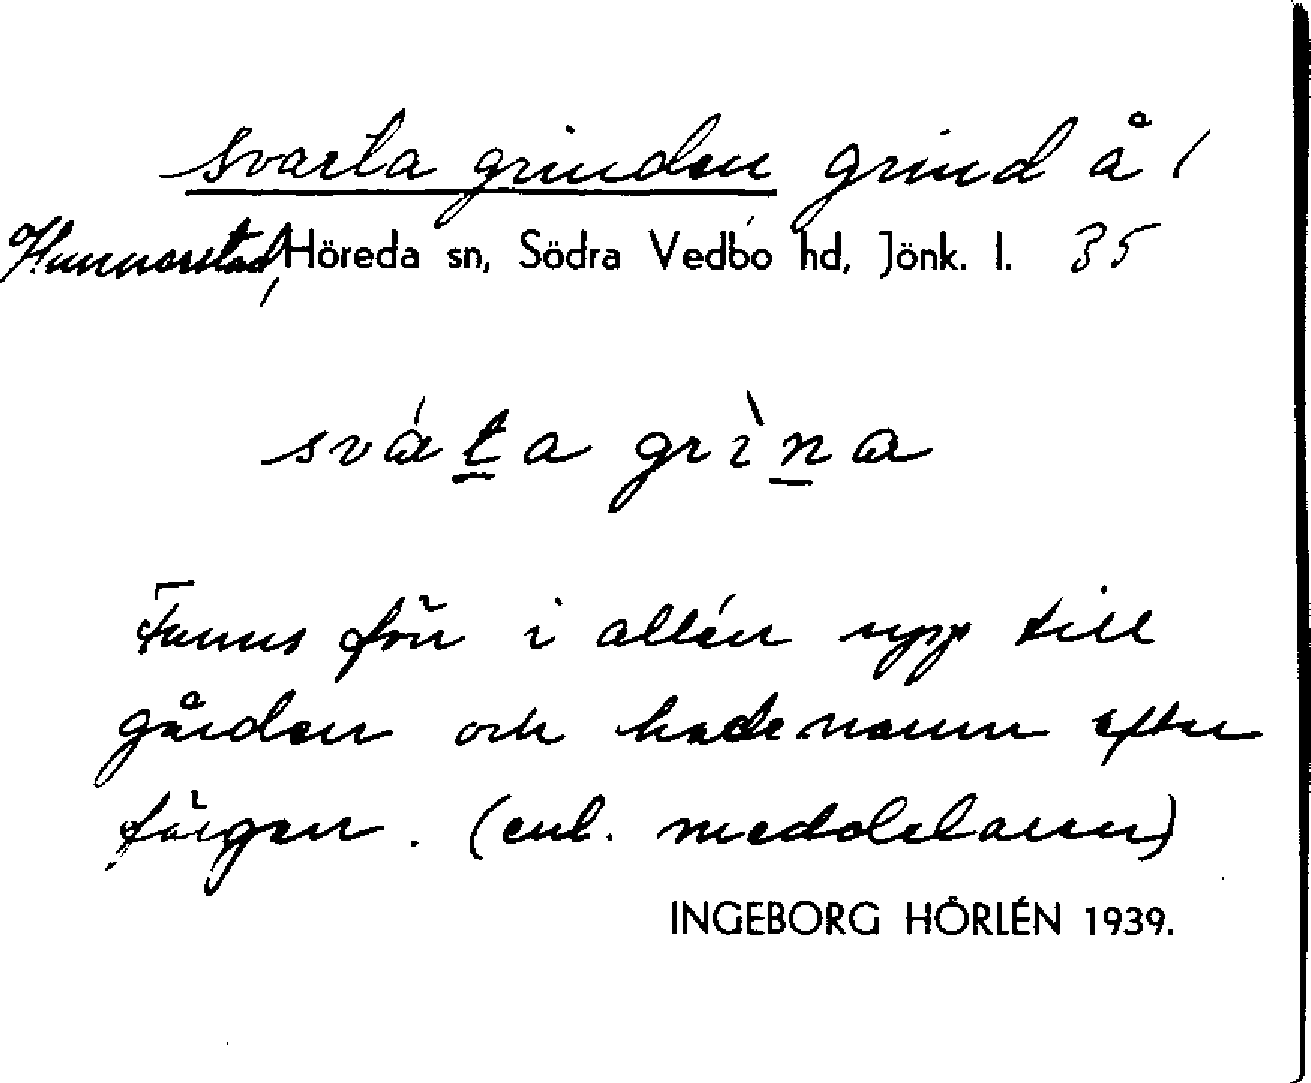 svarta grinden grind å 1
Hunnerstad, Höreda sn, Södra Vedbo hd, Jönk. l. 35
sváṯa grìṉa
Fanns förr i allén upp till
gården och hade namn efter
färgen. (enl. meddelaren)
INGEBORG HÖRLÉN 1939.